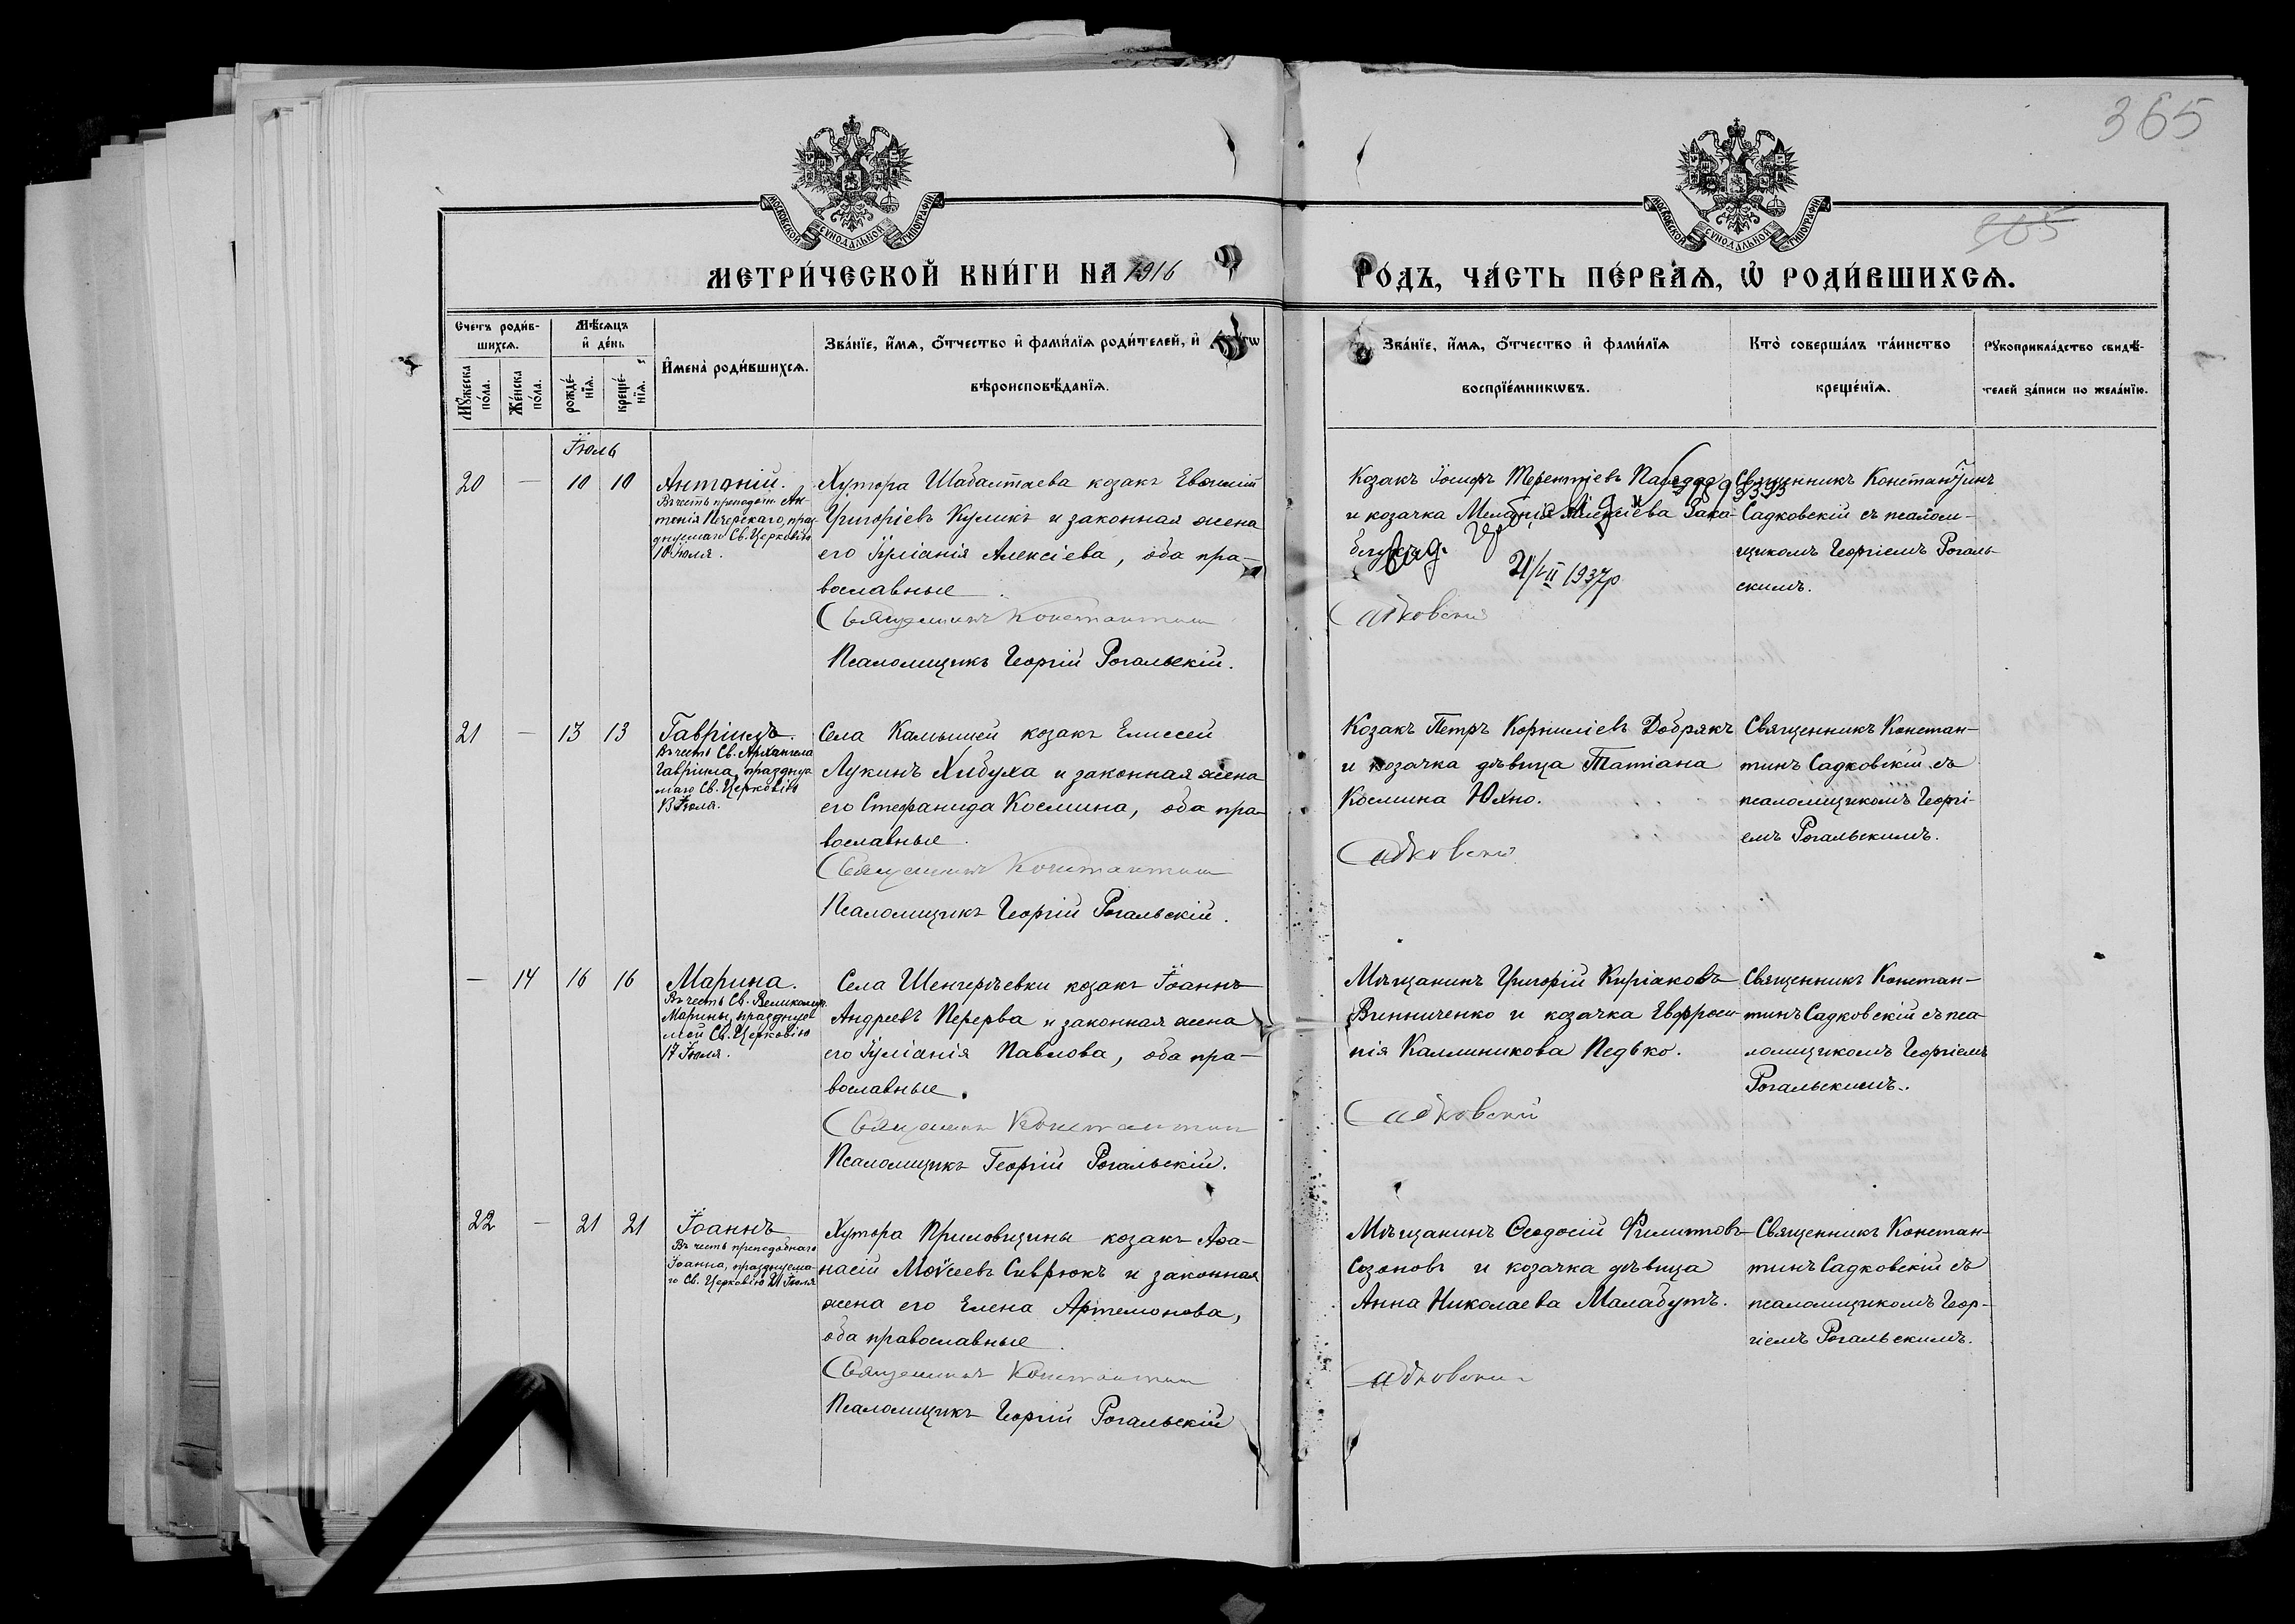 365
365
МОСКОВСКОЙ СУНОДАЛЬНОЙ ТИПОГРАФІИ
МОСКОВСКОЙ СУНОДАЛЬНОЙ ТИПОГРАФІИ
МЕТРИ́ЧЕСКОЙ КНИ́ГИ НА 1916
ГО́ДЪ, ЧА́СТЬ ПЕ́РВАѦ, Ѡ҆ РОДИ́ВШИХСѦ.
Счетъ роди́в-
шихсѧ.
Мꙋ́жеска
по́ла.
Же́нска
по́ла.
Мѣ́сѧцъ
и҆ де́нь
рожде́-
нїѧ.
креще́-
нїѧ.
И҆мена̀ роди́вшихсѧ.
Зва́нїе, и҆́мѧ, ѻ҆́тчество и҆ фами́лїѧ роди́телей, и҆
вѣроисповѣ́данїѧ.
Зва́нїе, и҆́мѧ, ѻ҆́тчество и҆ фами́лїѧ
воспрїе́мникѡвъ.
Кто̀ соверша́лъ та́инство
креще́нїѧ.
Рꙋкоприкла́дство свидѣ́-
телей за́писи по жела́нїю.
Іюль
20 — 10 10
Антоній.
Въ честь преподоб. Ан-
тонія Печерскаго, праз-
днуемаго Св. Церковію
10 Іюля.
Хутора Шабалтаева козакъ Евѳимій
Григоріевъ Куликъ и законная жена
его Іуліанія Алексіева, оба пра-
вославные.
Священникъ Константин
Псаломщикъ Георгій Рогальскій.
Козакъ Іосифъ Терентіевъ
и козачка Меланія
21/VII 1937р
Садковскій
Священникъ Константинъ
Садковскій съ псалом-
щикомъ Георгіемъ Рогаль-
скимъ.
21 — 13 13
Гавріилъ.
Въ честь Св. Архангела
Гавріила, праздную
маго Св. Церковію
13 Іюля.
Села Камышей козакъ Елиссей
Лукинъ Хибуха и законная жена
его Стефанида Космина, оба пра-
вославные.
Священникъ Константин
Псаломщикъ Георгій Рогальскій.
Козакъ Петръ Корниліевъ Добрякъ
и козачка дѣвица Татіана
Космина Юхно.
Садковскій
Священникъ Констан-
тинъ Садковскій съ
псаломщикомъ Георгі-
емъ Рогальскимъ.
— 14 16 16
Марина.
Въ честь Св. Великомуч.
Марины, празднуе
мой Св. Церковію
17 Іюля.
Села Шенгеріевки козакъ Іоаннъ
Андреевъ Перерва и законная жена
его Іуліанія Павлова, оба пра-
вославные.
Священникъ Константин
Псаломщикъ Георгій Рогальскій.
Мѣщанинъ Григорій Киріаковъ
Винниченко и козачка Евфроси-
нія Каллиникова Педько.
Садковскій
Священникъ Констан-
тинъ Садковскій съ пса-
ломщикомъ Георгіемъ
Рогальскимъ.
22 — 21 21
Іоаннъ
Въ честь преподобнаго
Іоанна, празднуема-
го Св. Церковію 21 Іюля
Хутора Примовщины козакъ Аѳа-
насій Моѵсеевъ Сиврюкъ и законная
жена его Елена Артемонова,
оба православные.
Священникъ Константин
Псаломщикъ Георгій Рогальскій
Мѣщанинъ Ѳеодосій Филиповъ
Созоновъ и козачка дѣвица
Анна Николаева Малабутъ.
Садковскій
Священникъ Констан-
тинъ Садковскій съ
псаломщикомъ Геор-
гіемъ Рогальскимъ.